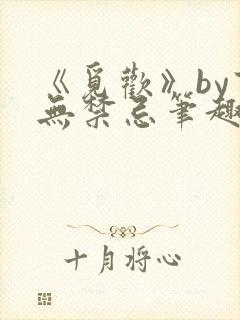 《覓歡》by
無禁忌筆趣
十月将心